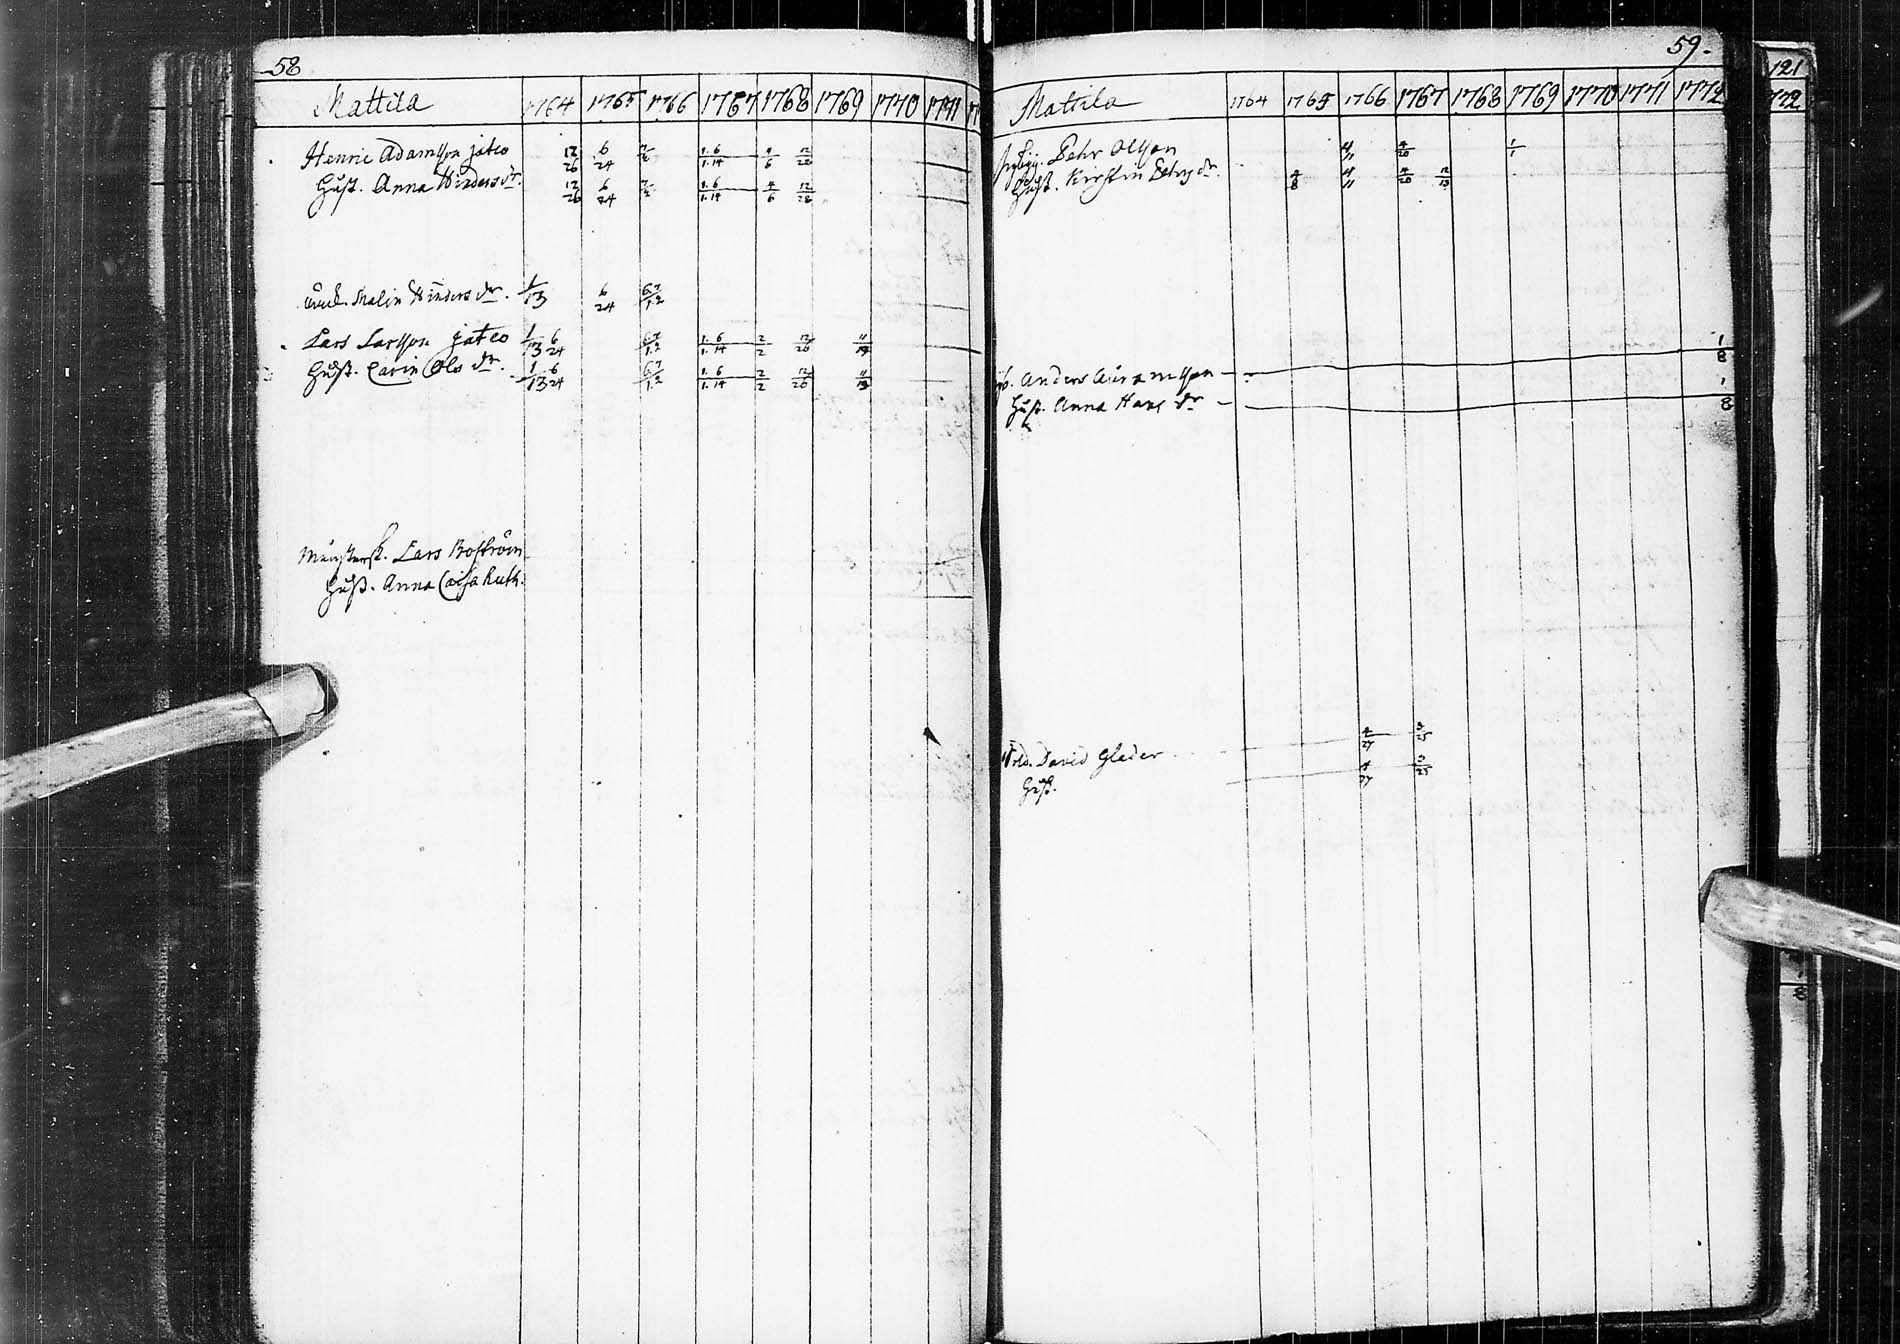 58
Mattila 1764 1765 1766 1767 1768 1769 1770 1771
Henric Adamsson jateo 12/26 6/24 1.6/1.14 4/6 12/20
Hust. Anna Hindersdr. 12/26 6/24 1.6/1.14 4/6 12/20
Malin Hindersdr. 1/13 6/24 6.7/1.2
Lars Larsson jateo 1/13 6/24 6.7/1.2 1.6/1.14 2/2 12/20 11/19
Hust. Carin Olsdr. 1/13 6/24 6.7/1.2 1.6/1.14 2/2 12/20 11/19
Lars Boström
Hust. Anna Caisa Ruth.
59.
Mattila 1764 1765 1766 1767 1768 1769 1770 1771 1772
Pehr Olsson 4/11 4/20 1/1
Hust. Kirstin Pehrsdr. 4/8 4/11 4/20 12/13
Anders Abramsson 1/8
Hust. Anna Hansdr 1/8
David Glader 4/27 3/25
Hust. 4/27 3/25
121
1772
1/8